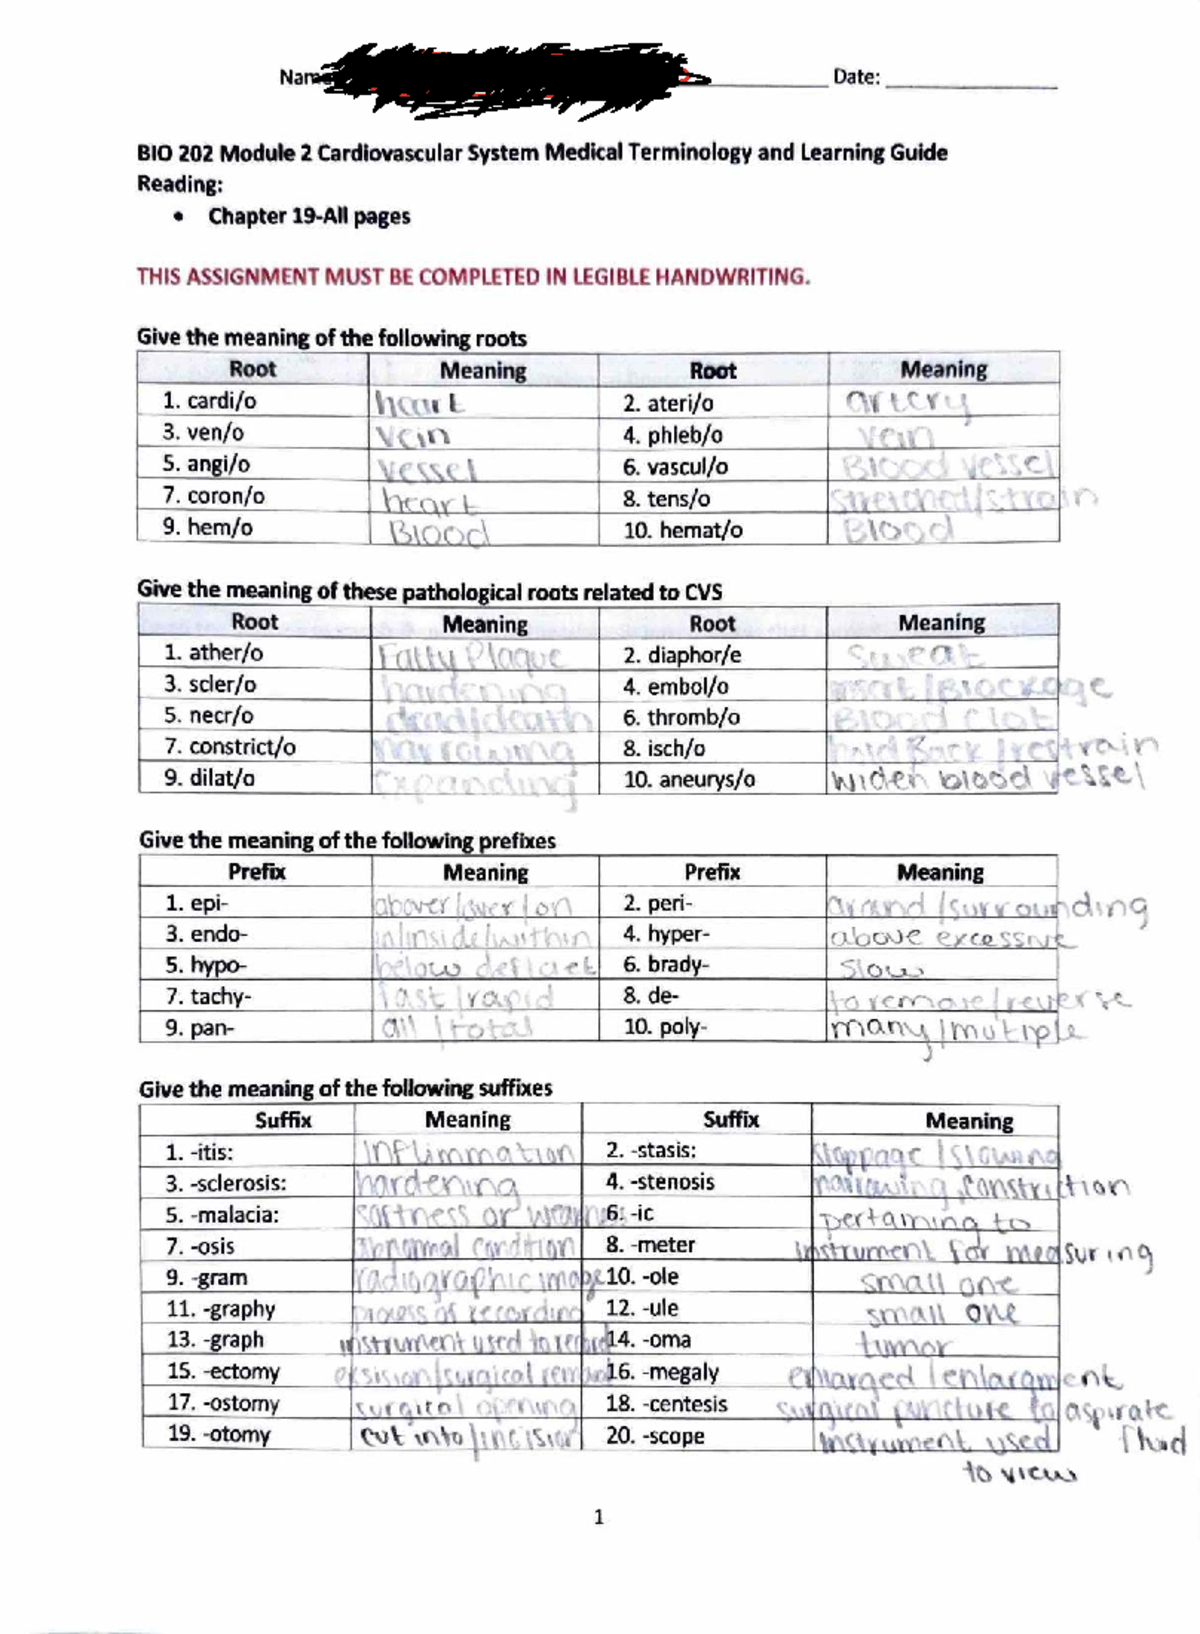 Name Date:
BIO 202 Module 2 Cardiovascular System Medical Terminology and Learning Guide
Reading:
• Chapter 19-All pages
THIS ASSIGNMENT MUST BE COMPLETED IN LEGIBLE HANDWRITING.
Give the meaning of the following roots
Root Meaning Root Meaning
1. cardi/o heart 2. ateri/o artery
3. ven/o vein 4. phleb/o vein
5. angi/o vessel 6. vascul/o Blood vessel
7. coron/o heart 8. tens/o stretched/strain
9. hem/o Blood 10. hemat/o Blood
Give the meaning of these pathological roots related to CVS
Root Meaning Root Meaning
1. ather/o Fatty Plaque 2. diaphor/e sweat
3. scler/o hardening 4. embol/o /Blockage
5. necr/o dead/death 6. thromb/o Blood clot
7. constrict/o narrowing 8. isch/o hold Back/restrain
9. dilat/o Expanding 10. aneurys/o widen blood vessel
Give the meaning of the following prefixes
Prefix Meaning Prefix Meaning
1. epi- above/over/on 2. peri- around/surrounding
3. endo- in/inside/within 4. hyper- above excessive
5. hypo- below 6. brady- slow
7. tachy- fast/rapid 8. de- to remove/reverse
9. pan- all/total 10. poly- many/mutiple
Give the meaning of the following suffixes
Suffix Meaning Suffix Meaning
1. -itis: Inflimmation 2. -stasis: stoppage/slowing
3. -sclerosis: hardening 4. -stenosis narrowing, constriction
5. -malacia: softness or 6. -ic pertaining to
7. -osis abnormal condition 8. -meter instrument for measuring
9. -gram radiographic image 10. -ole small one
11. -graphy process of recording 12. -ule small one
13. -graph instrument used to record 14. -oma tumor
15. -ectomy eksision/surgical removal 16. -megaly enlarged/enlargment
17. -ostomy surgical opening 18. -centesis surgical puncture to aspirate
19. -otomy cut into/incision 20. -scope instrument used fluid
to view
1